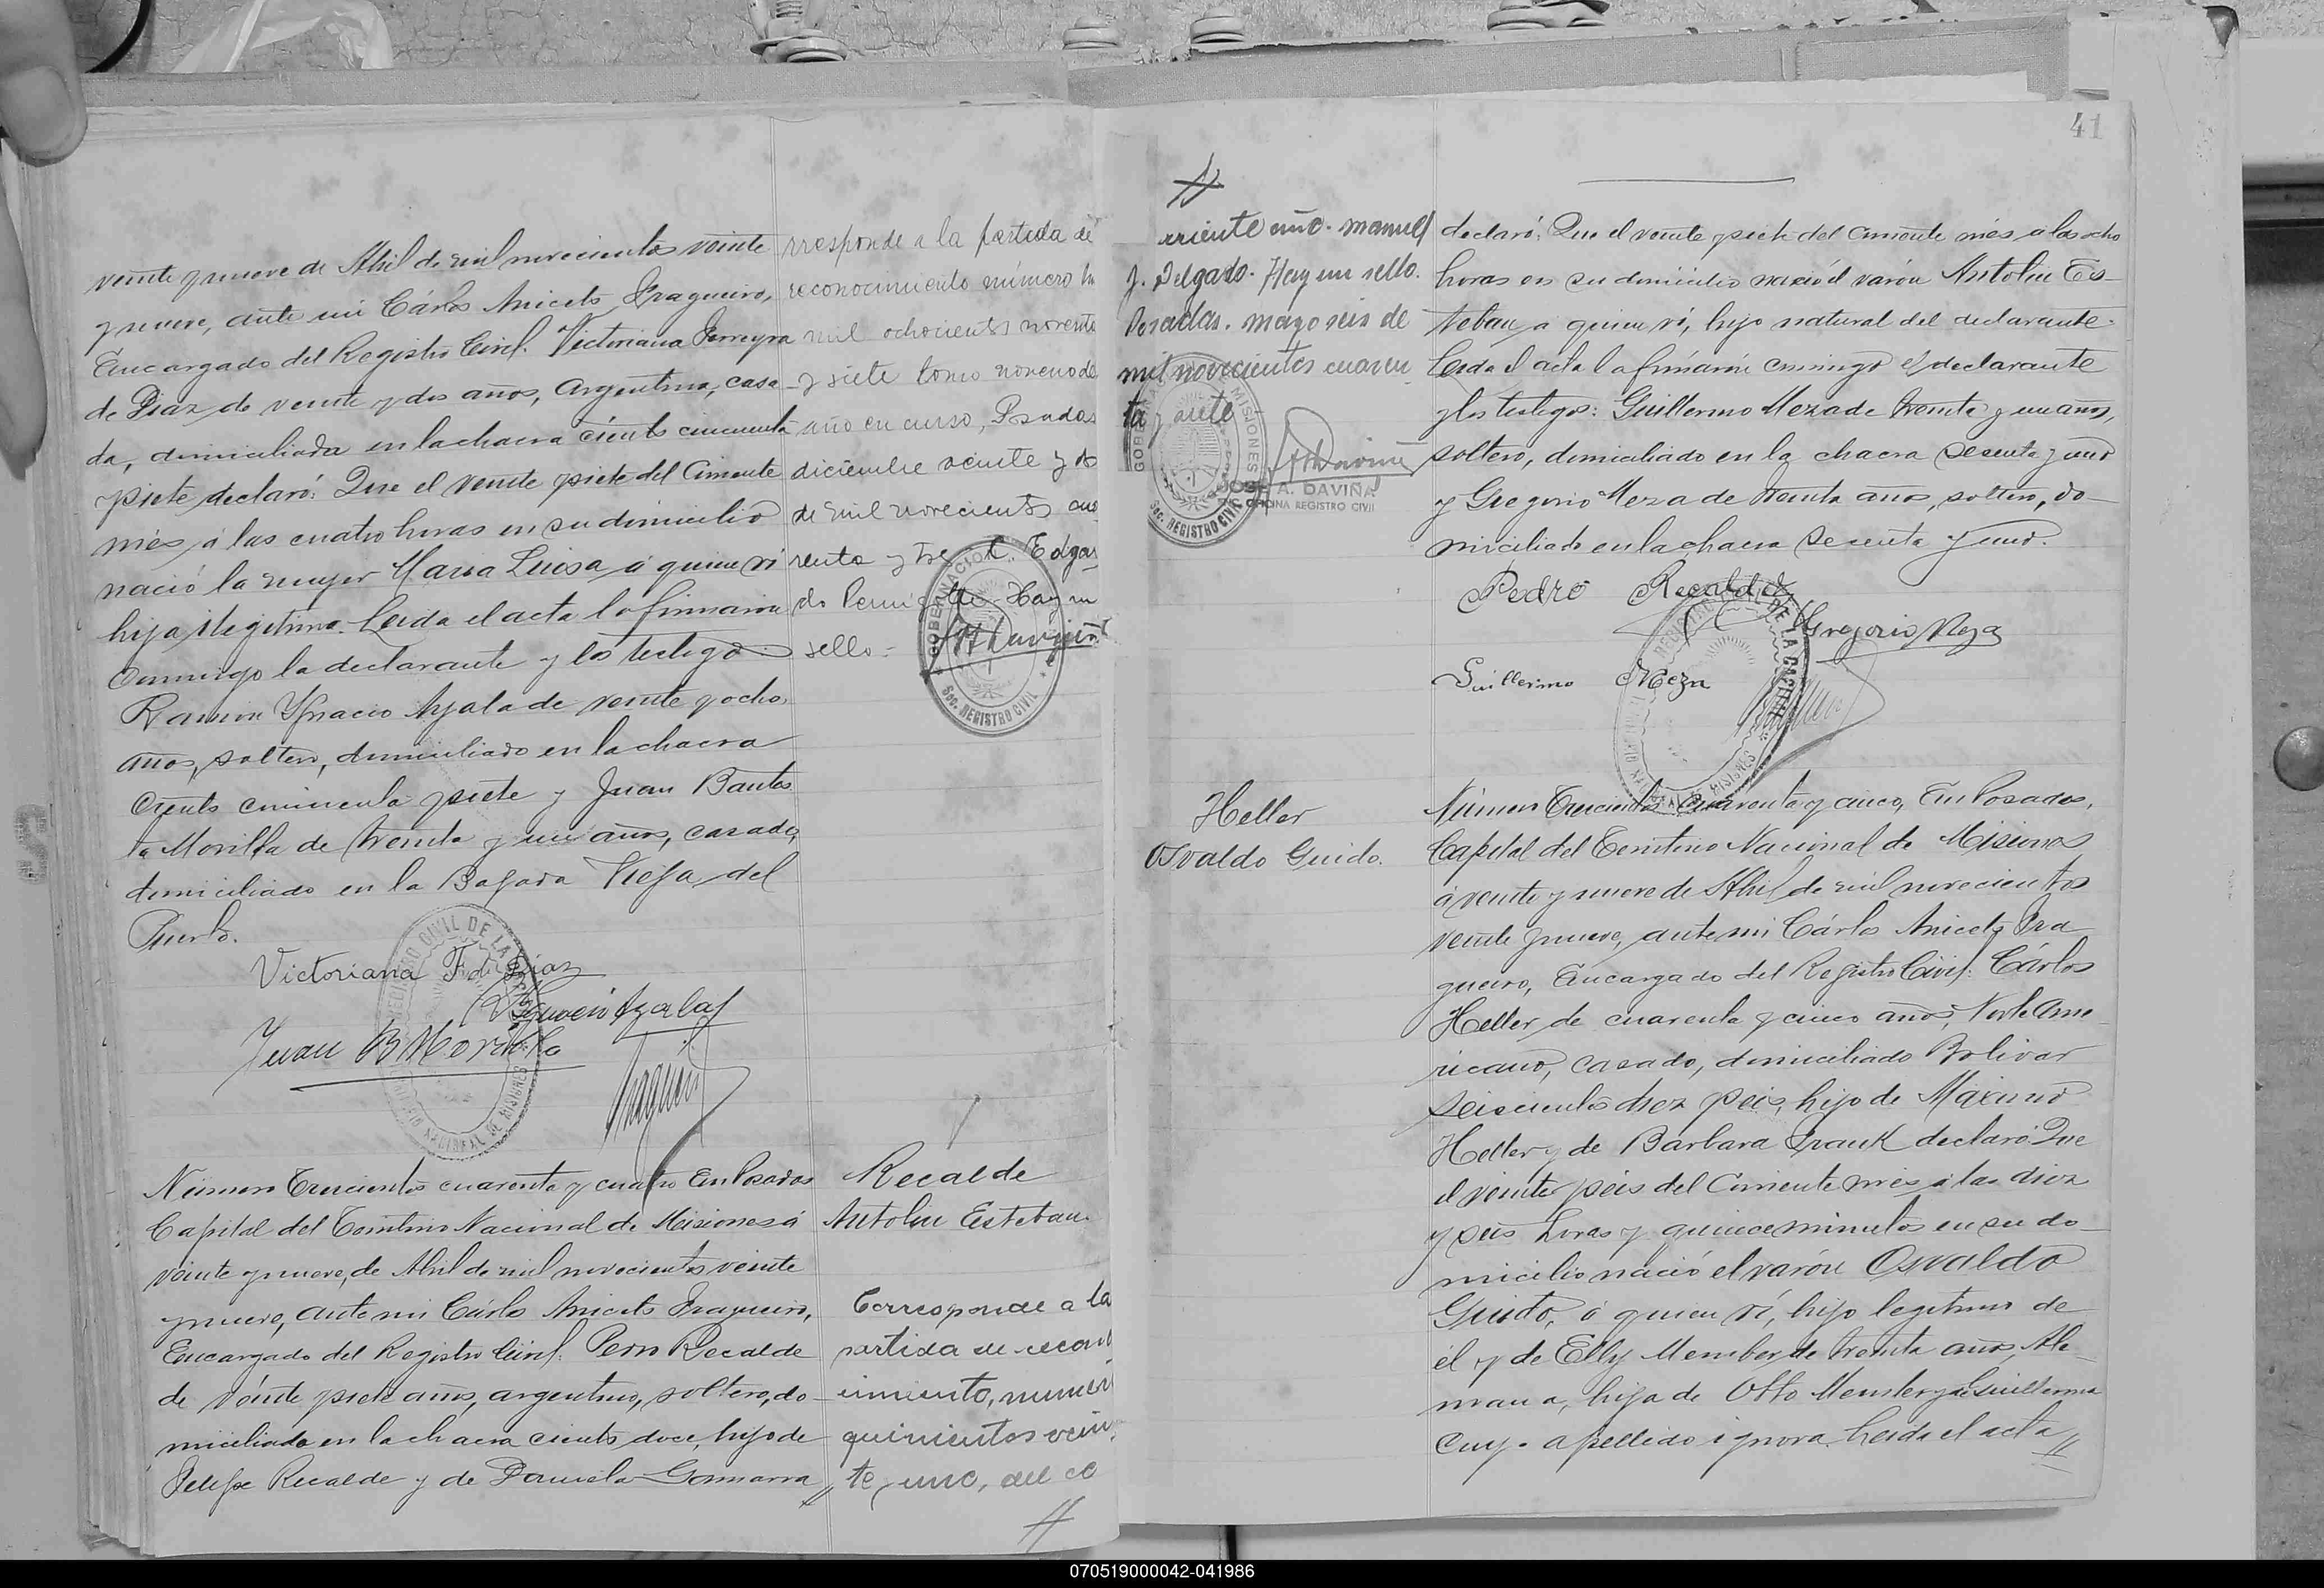 veinte y nueve de Abril de mil novecientos veinte
y nueve, ante mi Cárlos Aniceto Fragueiro,
Encargado del Registro Civil. Victoriana Ferreyra
de Diaz de veinte y dos años, Argentina, casa-
da, domiciliada en la chacra ciento cincuenta
y siete declaró: Que el veinte y siete del Corriente
mes, á las cuatro horas en su domicilio
nació la mujer Maria Luisa á quien ví
hija ilegitima. Leida el acta la firmaron
conmigo la declarante y los testigos
Ramon Ygnacio Ayala de veinte y ocho
años, soltero, domiciliado en la chacra
Ciento cincuenta y siete y Juan Bautis
ta Morilla de treinta y un años, casado,
domiciliado en la Bajada Vieja del
Puerto.
Victoriana F. de Diaz
Ayala
Juan B Morilla
Número Trescientos cuarenta y cuatro En Posadas
Capital del Territorio Nacional de Misiones á
veinte y nueve, de Abril de mil novecientos veinte
y nueve, ante mi Cárlos Aniceto Fragueiro,
Encargado del Registro Civil: Pedro Recalde
de veinte y siete años, argentino, soltero, do-
miciliado en la chacra ciento doce, hijo de
Felipe Recalde y de Daniela Gamarra //
rresponde a la partida de
reconocimiento número
mil ochocientos noventa
y siete tomo noveno del
año en curso, Posadas
diciembre veinte y
de mil novecientos cua
renta y tres. Edgar
do Hay un
sello.-
GOBERNACION
Sec. REGISTRO CIVIL
Recalde
Antolin Esteban.
Corresponde a la
partida de recono
cimiento, numero
quinientos vein
te y uno, del co
//
41
//
rriente año. Manuel
J. Delgado. Hay un sello.
Posadas. mayo seis de
mil novecientos cuaren
ta y siete
MISIONES
JOSE A. DAVIÑA
OFICINA REGISTRO CIVIL
Sec. REGISTRO CIVIL
declaró: Que el veinte y siete del corriente mes á las ocho
horas en su domicilio nació el varón Antolin Es-
teban á quien ví, hijo natural del declarante.
Leida el acta la firmaron conmigo el declarante
y los testigos: Guillermo Meza de treinta y un años,
soltero, domiciliado en la chacra sesenta y uno
y Gregorio Meza de treinta años, soltero, do-
miciliado en la chacra sesenta y uno.
Pedro Recalde
Gregorio Meza
Guillermo Meza
Heller
Osvaldo Guido.
Número Trescientos cuarenta y cinco, En Posadas,
Capital del Territorio Nacional de Misiones
á veinte y nueve de Abril de mil novecientos
veinte y nueve, ante mi Cárlos Aniceto Fra
gueiro, Encargado del Registro Civil: Cárlos
Heller de cuarenta y cinco años, Norte Ame-
ricano, casado, domiciliado Bolivar
seiscientos diez y seis, hijo de Máximo
Heller y de Barbara Frank declaró: Que
el veinte y seis del Corriente mes á las diez
y seis horas y quince minutos en su do-
micilio nació el varón Osvaldo
Guido, á quien ví, hijo legítimo de
él y de Elly Menster de treinta años, Ale-
mana, hija de Otto Menster y de Guillerma
cuyo apellido ignora. Leida el acta //
070519000042-041986